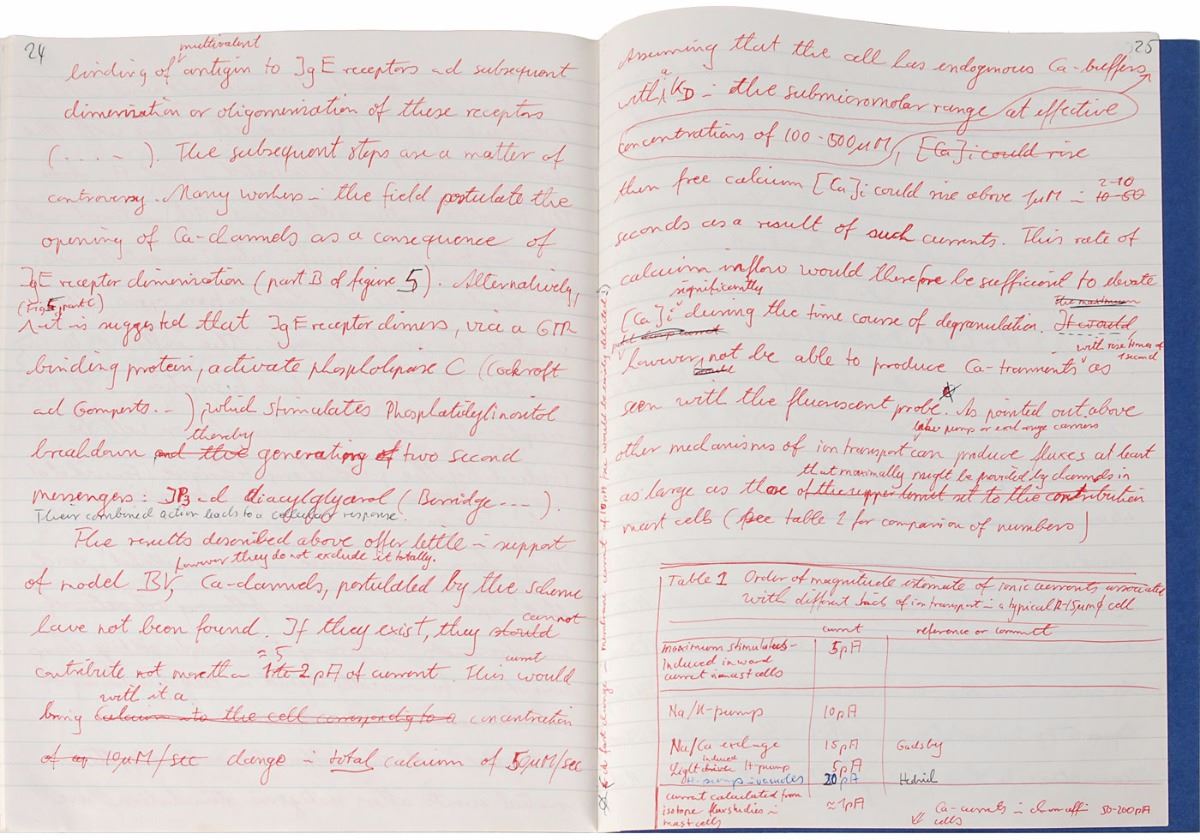 24
multivalent
binding of antigin to IgE receptors ad subsequent
dimerization or oligomerization of these receptors
(. . . . - ). The subsequent steps are a matter of
controversy. Many workers in the field postulate the
opening of Ca-channels as a consequence of
IgE receptor dimerization (part B of figure 5). Alternatively,
(Fig 5, part C)
it is suggested that IgE receptor dimers, via a GTP
binding protein, activate phospholipase C (Cockroft
ad Gomperts. . - ), which stimulates Phosphatidylinositol
thereby
breakdown and the generating of two second
messengers: IP3 ad diacylglycerol (Berridge - - - ).
Their combined action leads to a cellular response.
The results described above offer little in support
however they do not exclude it totally.
of model B, Ca-channels, postulated by the scheme
cannot
have not been found. If they exist, they should
≈ 5 current
contribute not more than 1 to 2 pA of current. This would
with it a
bring Calcium into the cell corresponding to a concentration
of up 10µM/sec change in total calcium of 50µM/sec
25
Assuming that the cell has endogenous Ca-buffers
a
with KD in the submicromolar range at effective
concentrations of 100-500µM, [Ca]i could rise
2-10
then free calcium [Ca]i could rise above 1µM in 10-50
seconds as a result of such currents. This rate of
calcium inflow would therefore be sufficient to elevate
significantly the maximum
[Ca]i during the time course of degranulation. It would,
with rise times of
1 second
however, not be able to produce Ca-transients as
seen with the fluorescent probe. As pointed out above
pump or exchange carriers
other mechanisms of ion transport can produce fluxes at least
that maximally might be provided by channels in
as large as those of the upper limit set to the contribution
mast cells (see table 2 for comparison of numbers)
Table 1 Order of magnitude estimate of ionic currents associated
with different kinds of ion transport in a typical 12-15µm ϕ cell
current reference or comment
maximum stimulated- 5pA
induced inward
current in mast cells
Na/K-pump 10pA
Na/Ca exchange 15pA Gadsby
induced
Light driven H-pump 5pA
H-pump in vacuoles 20pA Hedrich
current calculated from ≈1pA
isotope flux studies in
mast cells
Ca-currents in chromaffin 50-200pA
cells